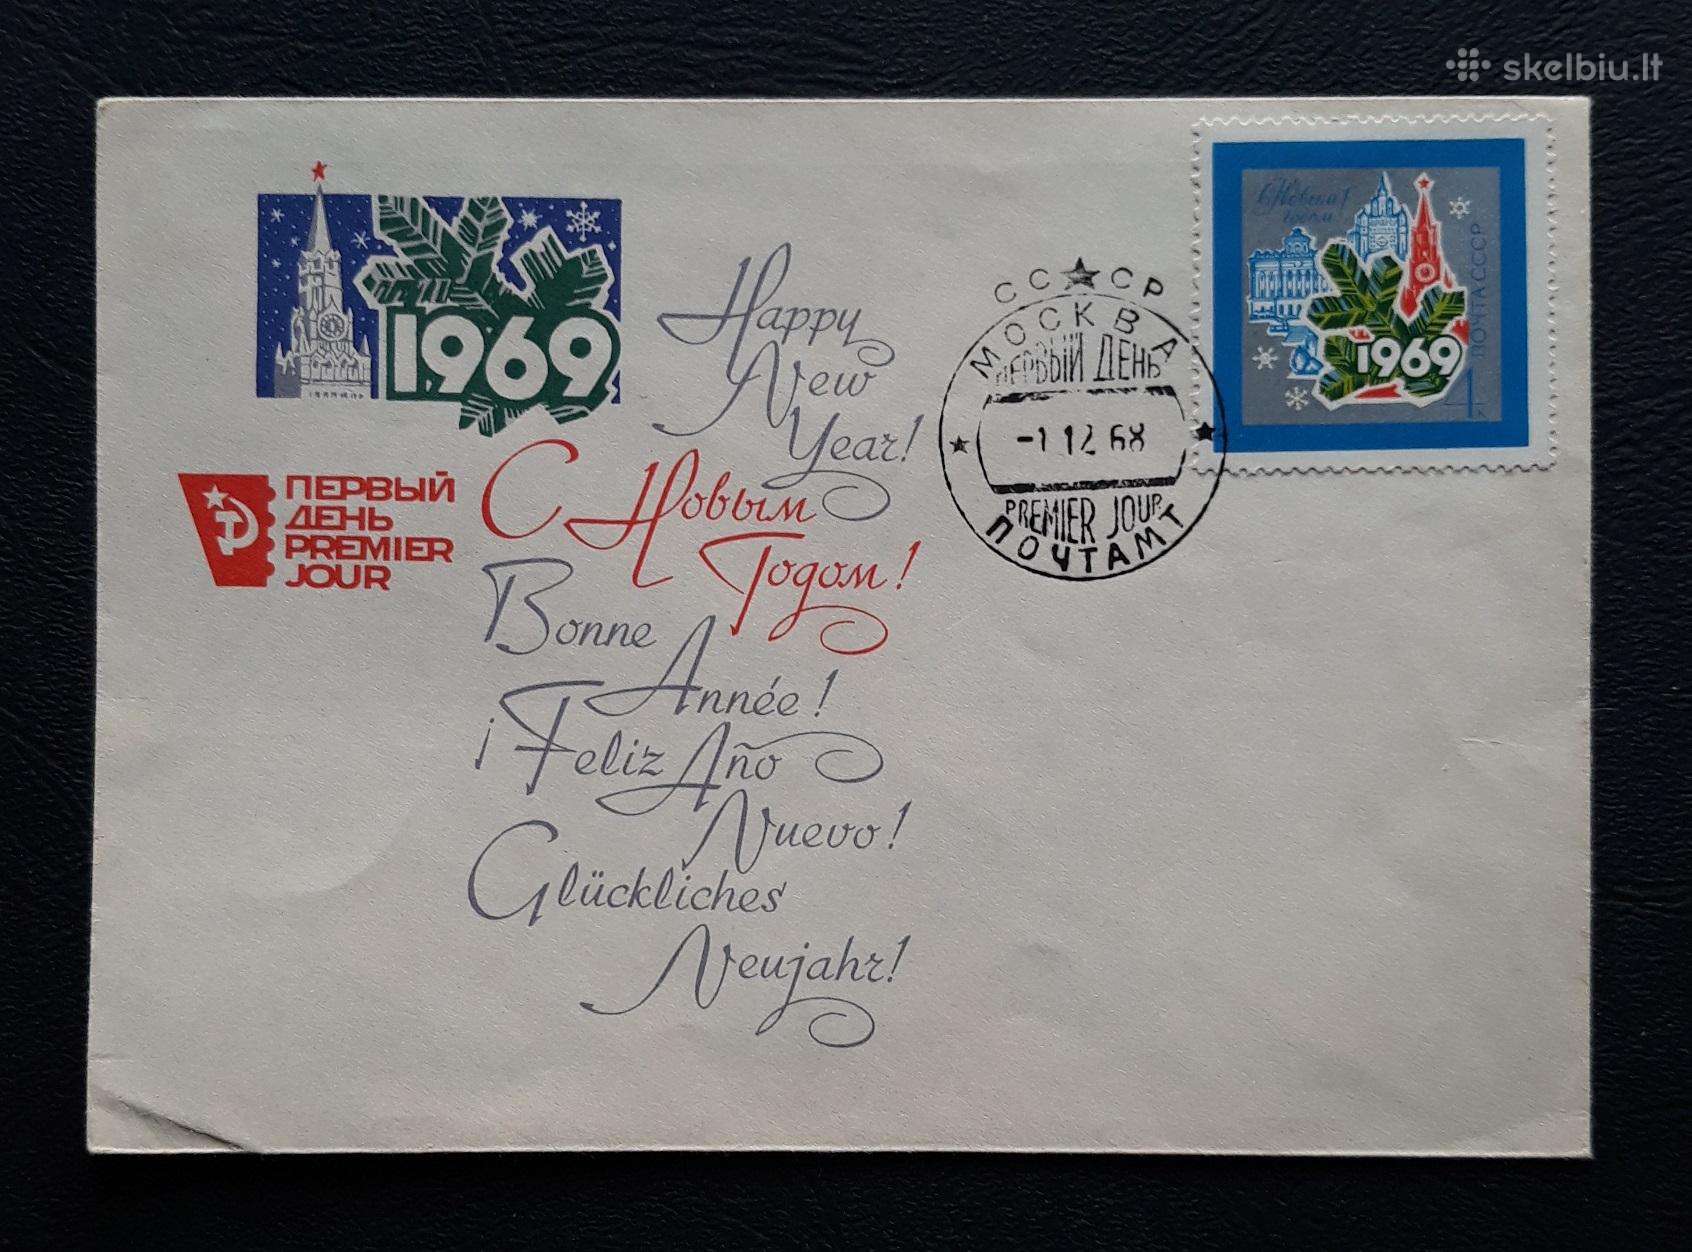 skelbiu.lt
1969
Happy
New
Year!
С Новым
Годом!
Bonne
Année!
¡Feliz Año
Nuevo!
Glückliches
Neujahr!
ПЕРВЫЙ
ДЕНЬ
PREMIER
JOUR
СССР
МОСКВА
ПЕРВЫЙ ДЕНЬ
-1 12 68
PREMIER JOUR
ПОЧТАМТ
с Новым
годом
1969
ПОЧТА СССР
4